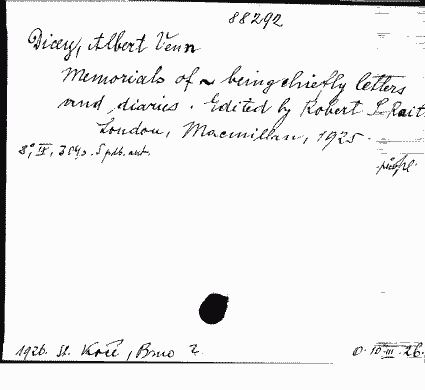 88292
Dicey, Albert Venn
Memorials of ~ being chiefly letters
and diaries. Edited by Robert S. Rait.
London, Macmillan, 1925.
8°, IV, 304 s. 5 příl. aut.
1926. St. Kočí, Brno 2.
0. 10-III-26.